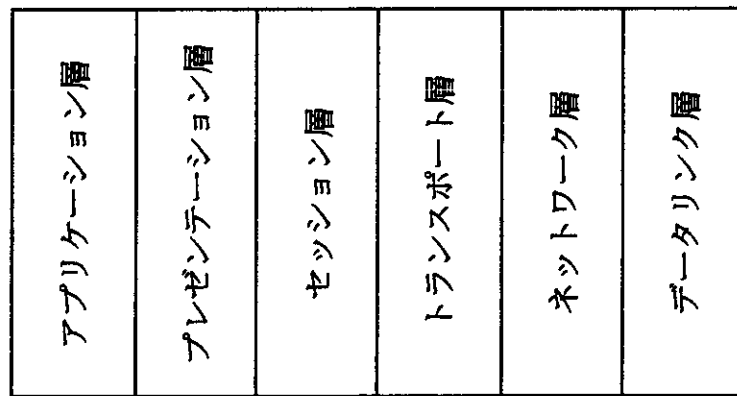 アプリケーション層
プレゼンテーション層
セッション層
トランスポート層
ネットワーク層
データリンク層